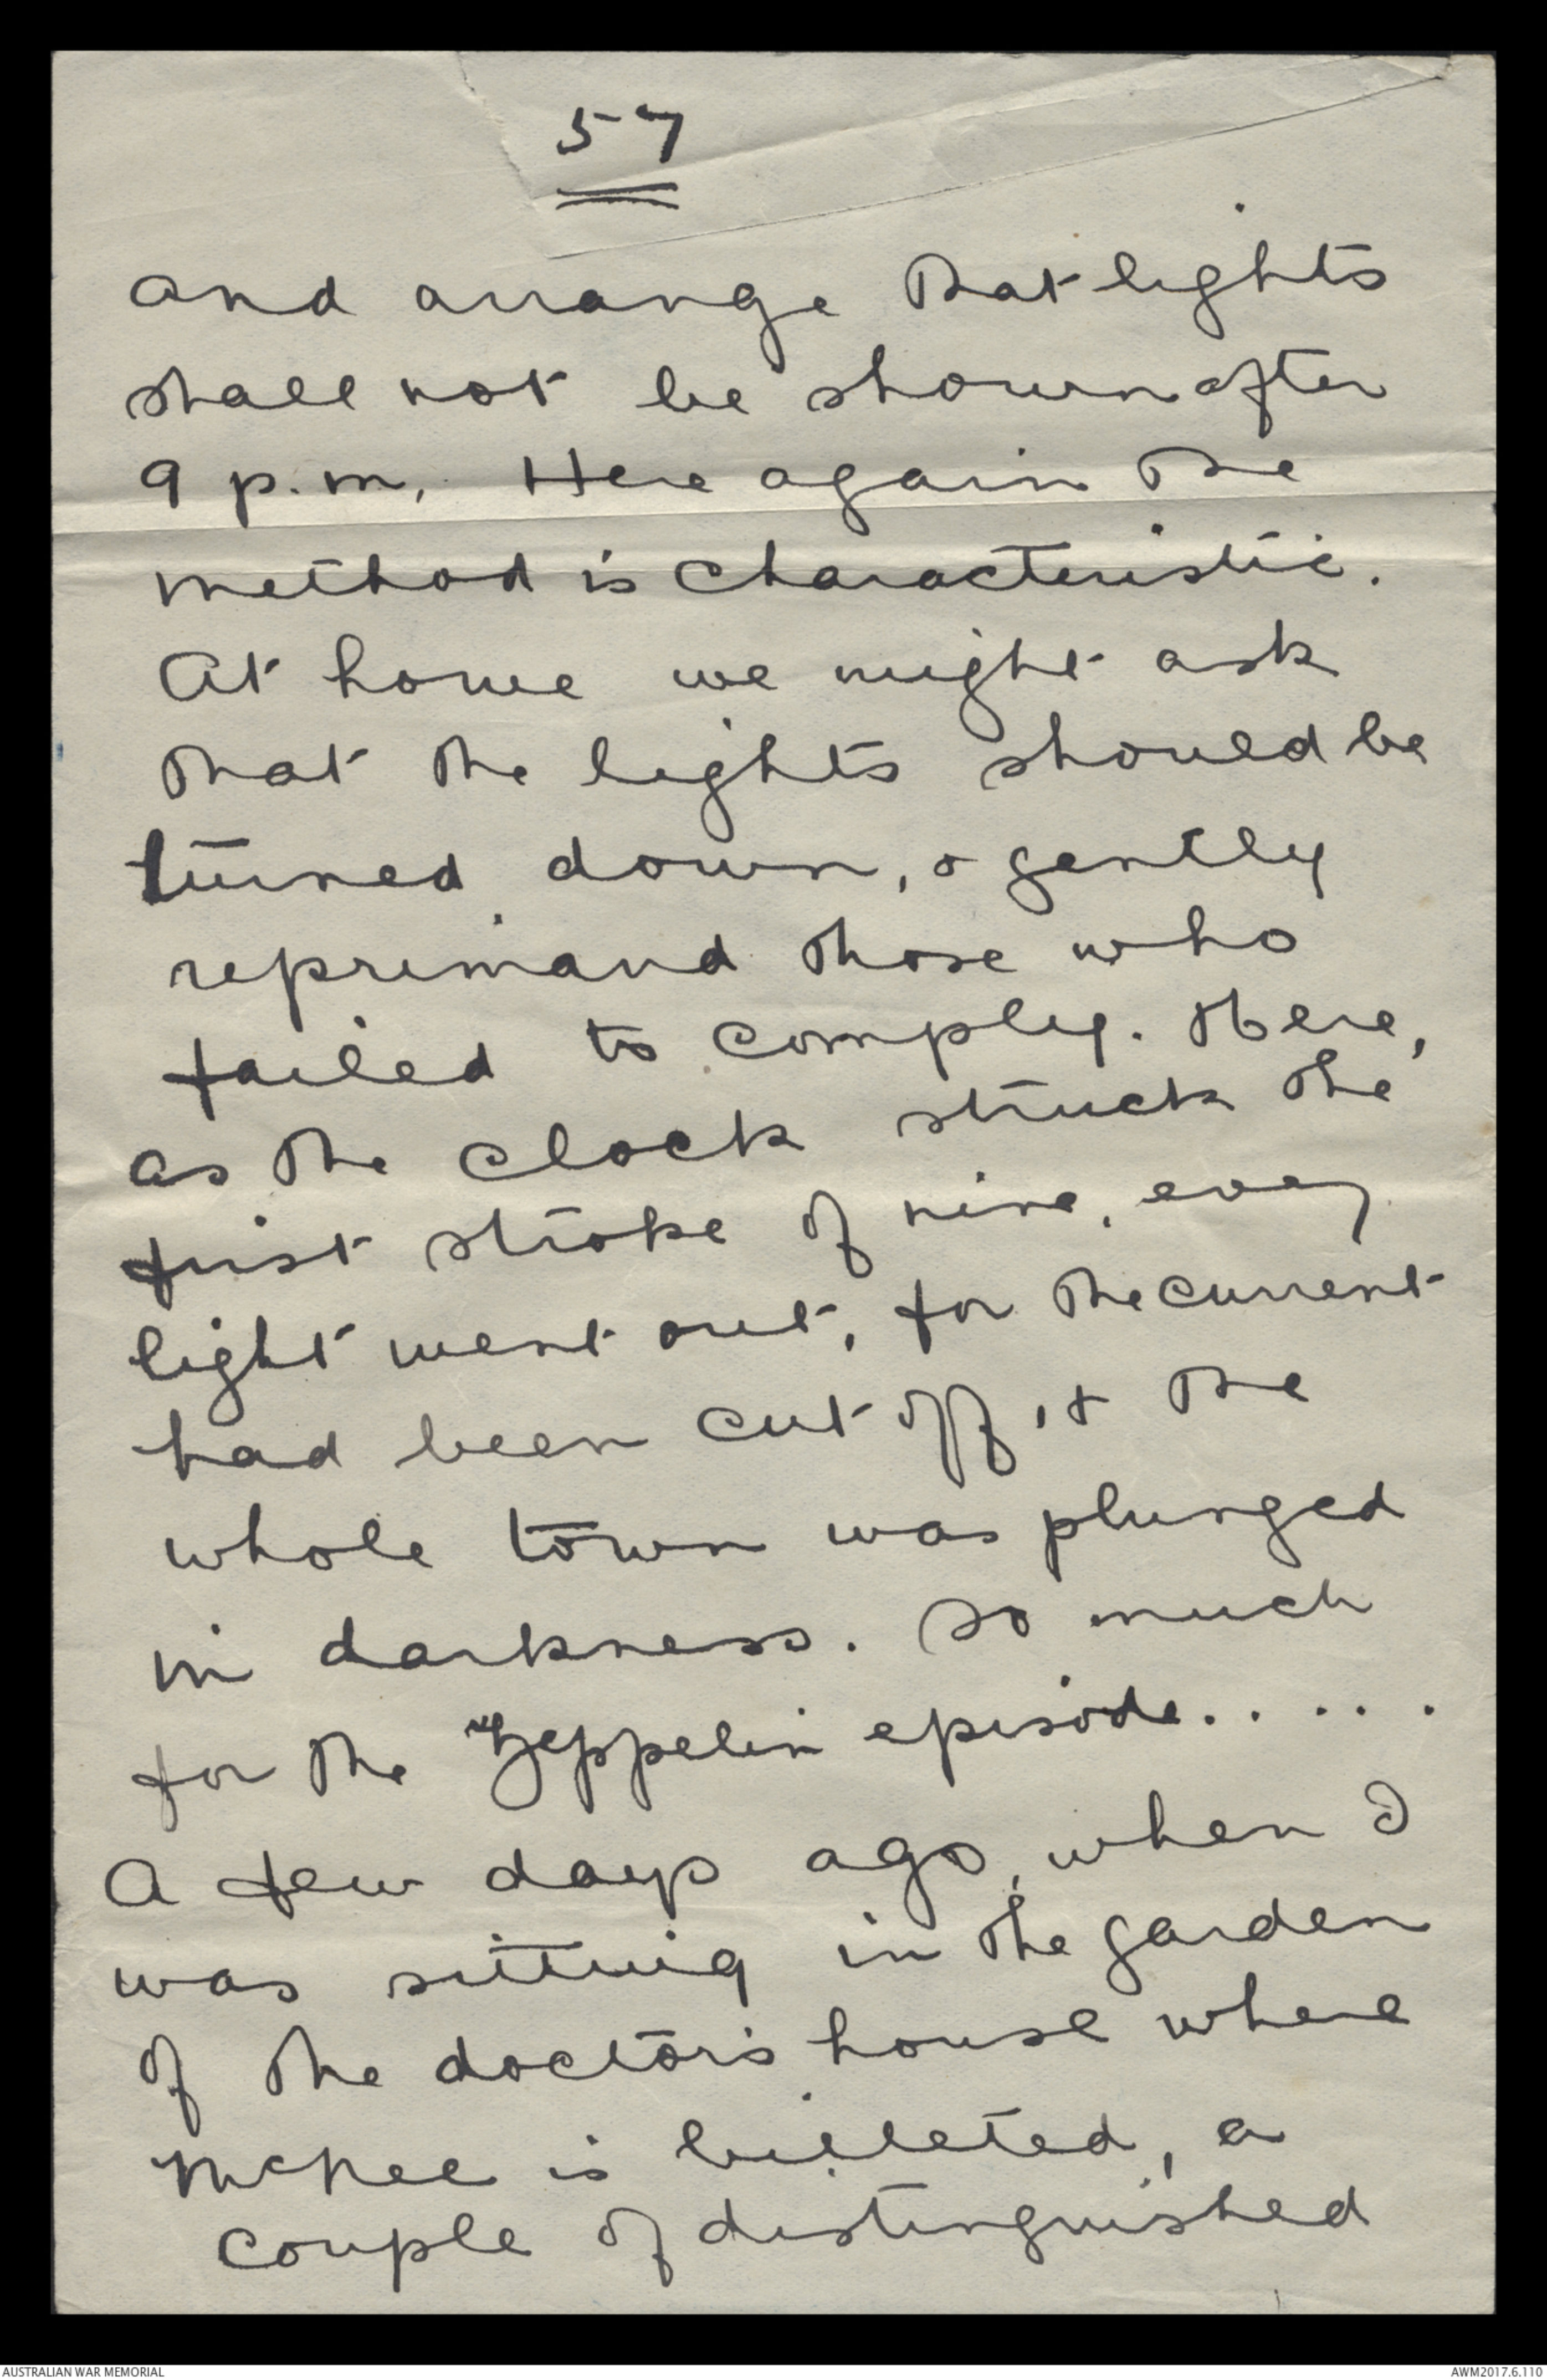 57
and arrange that lights
shall not be shown after
9 p.m. Here again the
method is characteristic.
At home we might ask
that the lights should be
turned down, & gently
reprimand those who
failed to comply. Here,
as the clock struck the
first stroke of nine, every
light went out, for the current
had been cut off, & the
whole town was plunged
in darkness. So much
for the Zeppelin episode.....
A few days ago, when I
was sitting in the garden
of the doctor's house where
McPhee is billeted, a
couple of distinguished
AUSTRALIAN WAR MEMORIAL
AWM2017.6.110